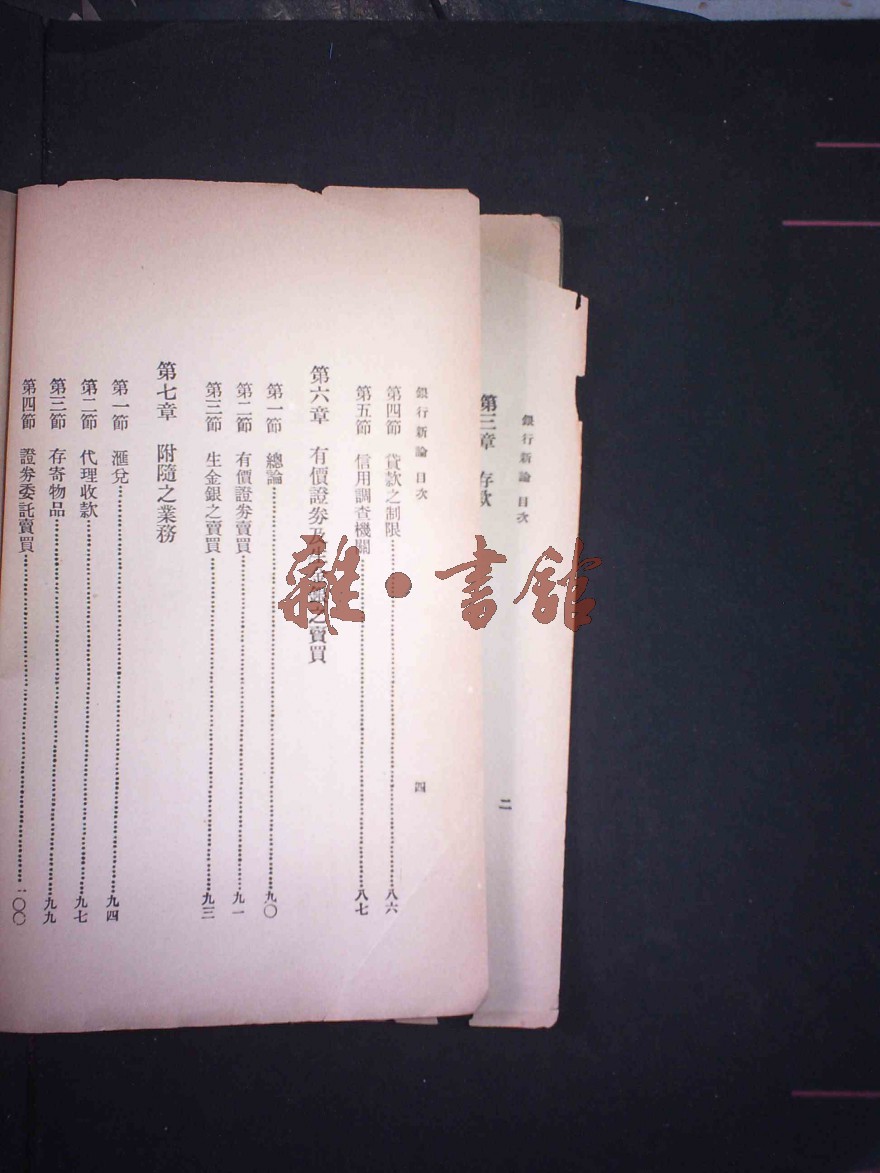 銀行新論 目次
二
第三章 存款
銀行新論 目次
四
第四節 貸款之制限 八六
第五節 信用調查機關 八七
第六章 有價證券及生金銀之賣買
第一節 總論 九〇
第二節 有價證券賣買 九一
第三節 生金銀之賣買 九三
第七章 附隨之業務
第一節 滙兌 九四
第二節 代理收款 九七
第三節 存寄物品 九九
第四節 證券委託賣買 一〇〇
雜·書館